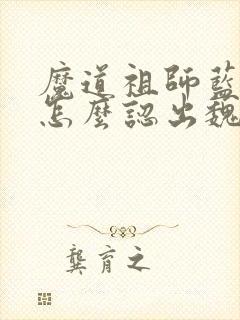 魔道祖師藍
怎麼認出魏
龔育之